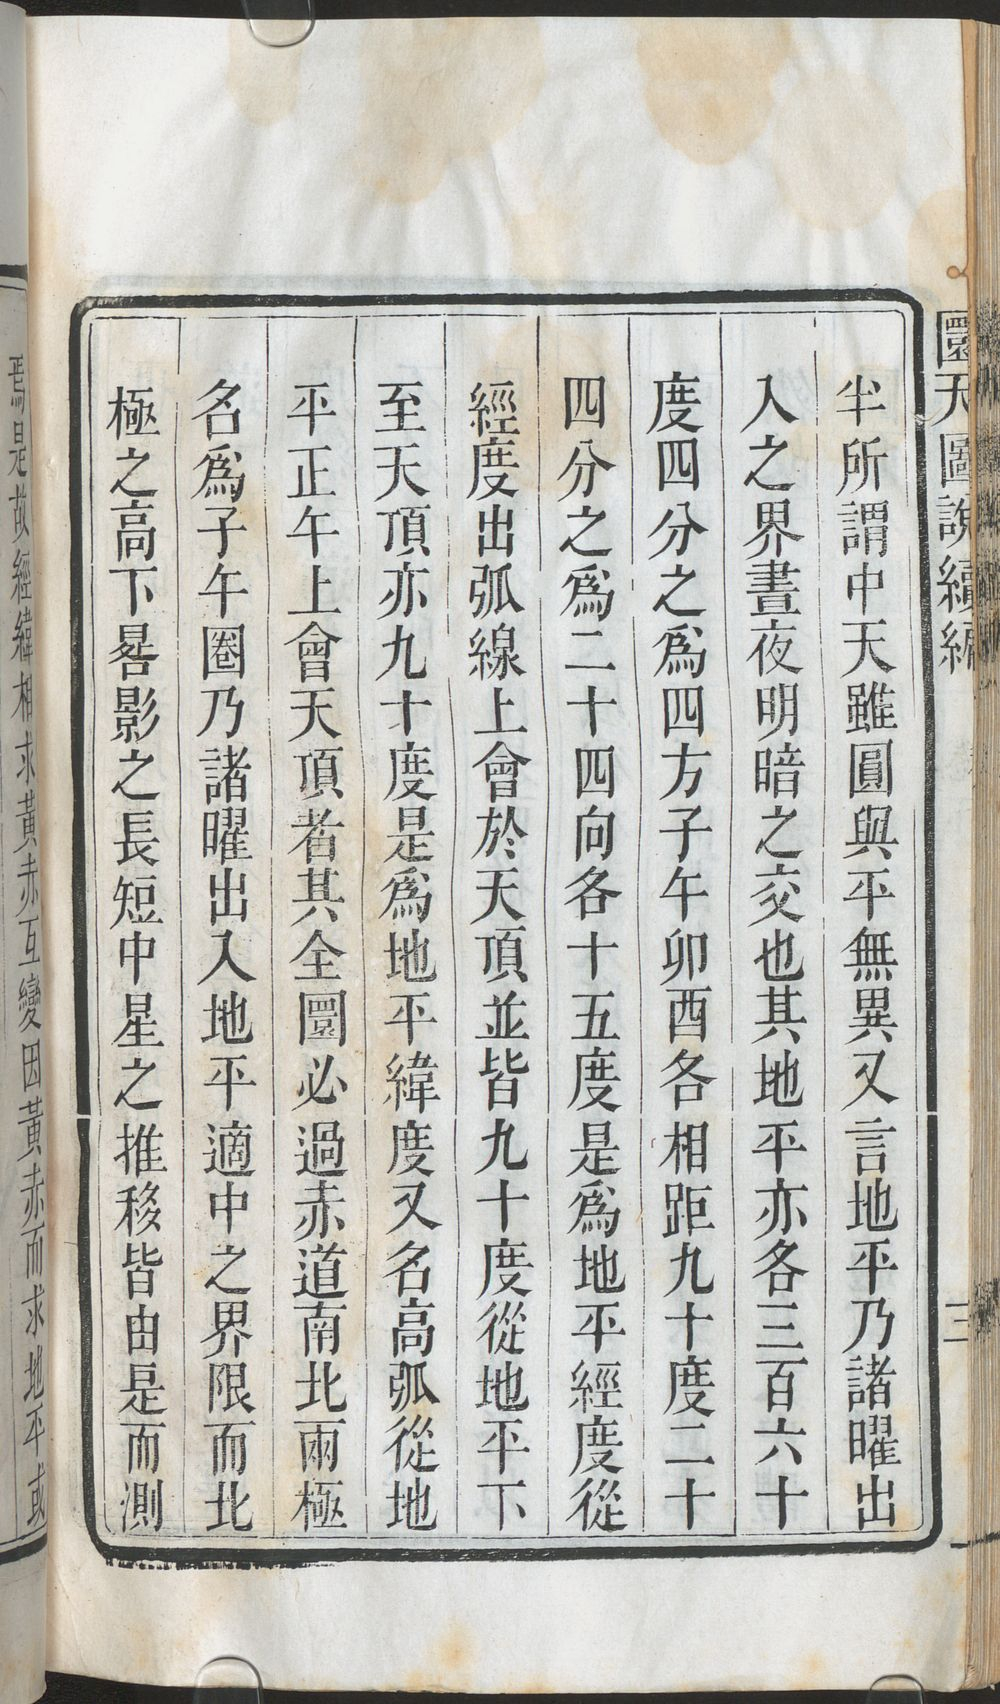 圜天圖說續編
三
半所謂中天雖圓與平無異又言地平乃諸曜出
入之界晝夜明暗之交也其地平亦各三百六十
度四分之爲四方子午卯酉各相距九十度二十
四分之爲二十四向各十五度是爲地平經度從
經度出弧線上會於天頂並皆九十度從地平下
至天頂亦九十度是爲地平緯度又名高弧從地
平正午上會天頂者其全圜必過赤道南北兩極
名爲子午圈乃諸曜出入地平適中之界限而北
極之高下晷影之長短中星之推移皆由是而測
焉是故經緯相求黃赤互變因黃赤而求地平或